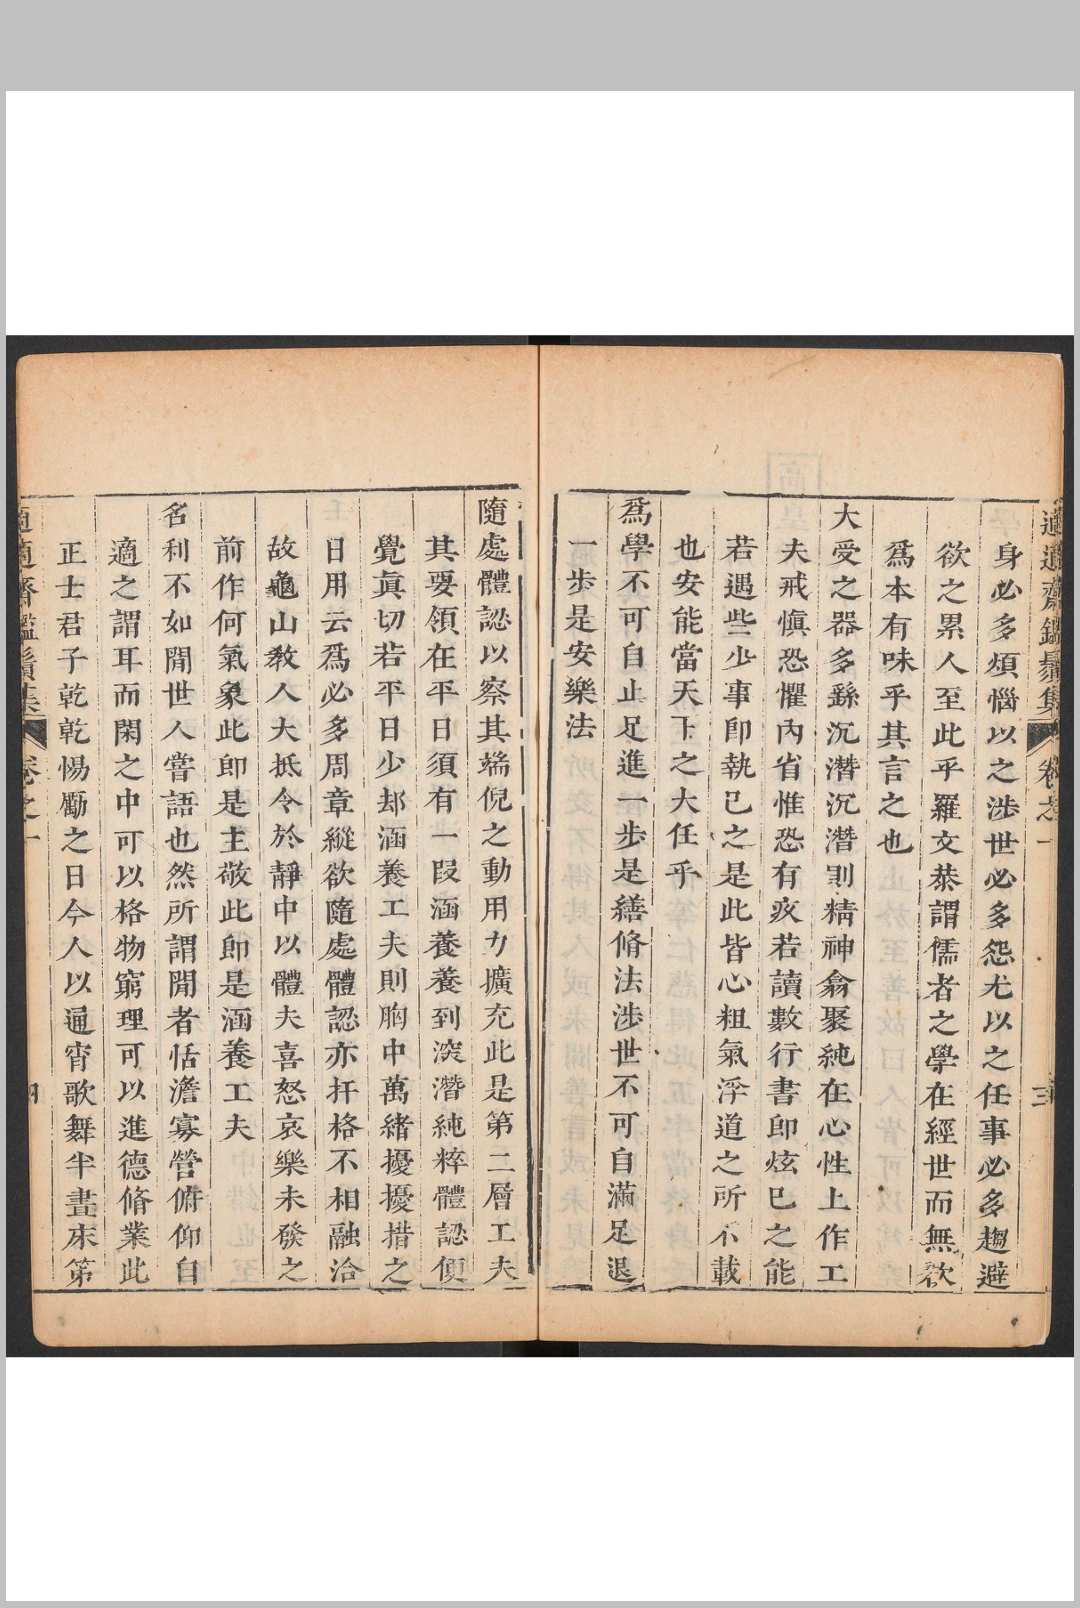 適適齋鑑鬚集 卷之一 三
身必多煩惱以之涉世必多怨尤以之任事必多趨避
欲之累人至此乎羅文恭謂儒者之學在經世而無欲
爲本有味乎其言之也
大受之器多繇沉潛沉潛則精神翕聚純在心性上作工
夫戒慎恐懼內省惟恐有疚若讀數行書卽炫巳之能
若遇些少事卽執巳之是此皆心粗氣浮道之所不載
也安能當天下之大任乎
爲學不可自止足進一步是繕脩法涉世不可自滿足退
一步是安樂法
隨處體認以察其端倪之動用力擴充此是第二層工夫
其要領在平日須有一段涵養養到淡潛純粹體認便
覺眞切若平日少却涵養工夫則胸中萬緒擾擾措之
日用云爲必多周章縱欲隨處體認亦扞格不相融洽
故龜山教人大抵令於靜中以體夫喜怒哀樂未發之
前作何氣象此卽是主敬此卽是涵養工夫
名利不如閒世人嘗語也然所謂閒者恬澹寡營俯仰自
適之謂耳而閑之中可以格物窮理可以進德脩業此
正士君子乾乾惕勵之日今人以通宵歌舞半晝床笫
適適齋鑑鬚集 卷之一 四